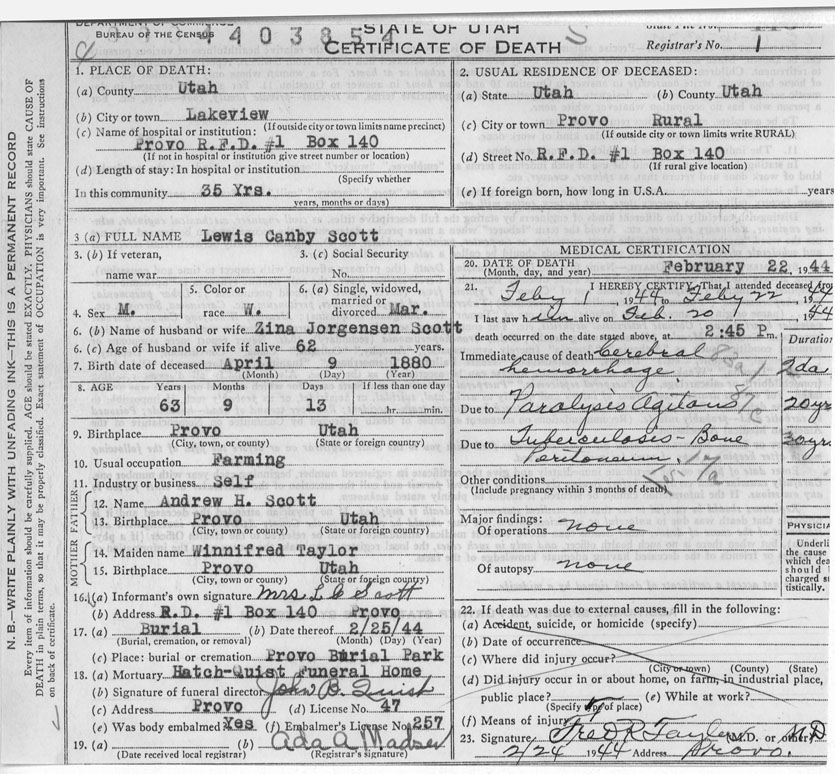 DEPARTMENT OF COMMERCE
BUREAU OF THE CENSUS
403854
STATE OF UTAH
CERTIFICATE OF DEATH
Registrar's No. 1
1. PLACE OF DEATH:
(a) County Utah
(b) City or town Lakeview
(If outside city or town limits name precinct)
(c) Name of hospital or institution:
Provo R.F.D. #1 Box 140
(If not in hospital or institution give street number or location)
(d) Length of stay: In hospital or institution
(Specify whether
In this community 35 Yrs.
years, months or days)
2. USUAL RESIDENCE OF DECEASED:
(a) State Utah (b) County Utah
(c) City or town Provo Rural
(If outside city or town limits write RURAL)
(d) Street No. R.F.D. #1 Box 140
(If rural give location)
(e) If foreign born, how long in U.S.A. years
3 (a) FULL NAME Lewis Canby Scott
3. (b) If veteran,
name war
3. (c) Social Security
No.
4. Sex M.
5. Color or
race W.
6. (a) Single, widowed,
married or
divorced Mar.
6. (b) Name of husband or wife Zina Jorgensen Scott
6. (c) Age of husband or wife if alive 62 years.
7. Birth date of deceased April 9 1880
(Month) (Day) (Year)
8. AGE Years Months Days If less than one day
63 9 13 hr. min.
9. Birthplace Provo Utah
(City, town, or county) (State or foreign country)
10. Usual occupation Farming
11. Industry or business Self
FATHER
12. Name Andrew H. Scott
13. Birthplace Provo Utah
(City, town or county) (State or foreign country)
MOTHER
14. Maiden name Winnifred Taylor
15. Birthplace Provo Utah
(City, town or county) (State or foreign country)
16. (a) Informant's own signature Mrs L C Scott
(b) Address R.D. #1 Box 140 Provo
17. (a) Burial (b) Date thereof 2/25/44
(Burial, cremation, or removal) (Month) (Day) (Year)
(c) Place: burial or cremation Provo Burial Park
18. (a) Mortuary Hatch-Quist Funeral Home
(b) Signature of funeral director John B. Quist
(c) Address Provo (d) License No. 47
(e) Was body embalmed Yes (f) Embalmer's License No. 257
19. (a) (b) Ada A Madsen
(Date received local registrar) (Registrar's signature)
MEDICAL CERTIFICATION
20. DATE OF DEATH
(Month, day, and year) February 22, 1944
21. I HEREBY CERTIFY That I attended deceased from
Feby 1, 1944 to Feby 22
I last saw him alive on Feb. 20 1944
death occurred on the date stated above, at 2:45 P.m.
Duration
Immediate cause of death Cerebral 83a1
hemorrhage 2da
Due to Paralysis Agitans 87c 20yr
Due to Tuberculosis - Bone 30yr
Peritoneum. 17a
Other conditions
(Include pregnancy within 3 months of death)
Major findings:
Of operations none
Of autopsy none
PHYSICIA
Underli
the cause
which dea
should
charged s
tistically.
22. If death was due to external causes, fill in the following:
(a) Accident, suicide, or homicide (specify)
(b) Date of occurrence
(c) Where did injury occur?
(City or town) (County) (State)
(d) Did injury occur in or about home, on farm, in industrial place,
public place? (e) While at work?
(Specify type of place)
(f) Means of injury
23. Signature Fred R Taylor M.D.
(M.D. or other)
2/24 1944 Address Provo.
N.B.—WRITE PLAINLY WITH UNFADING INK—THIS IS A PERMANENT RECORD
Every item of information should be carefully supplied. AGE should be stated EXACTLY. PHYSICIANS should state CAUSE OF
DEATH in plain terms, so that it may be properly classified. Exact statement of OCCUPATION is very important. See instructions
on back of certificate.